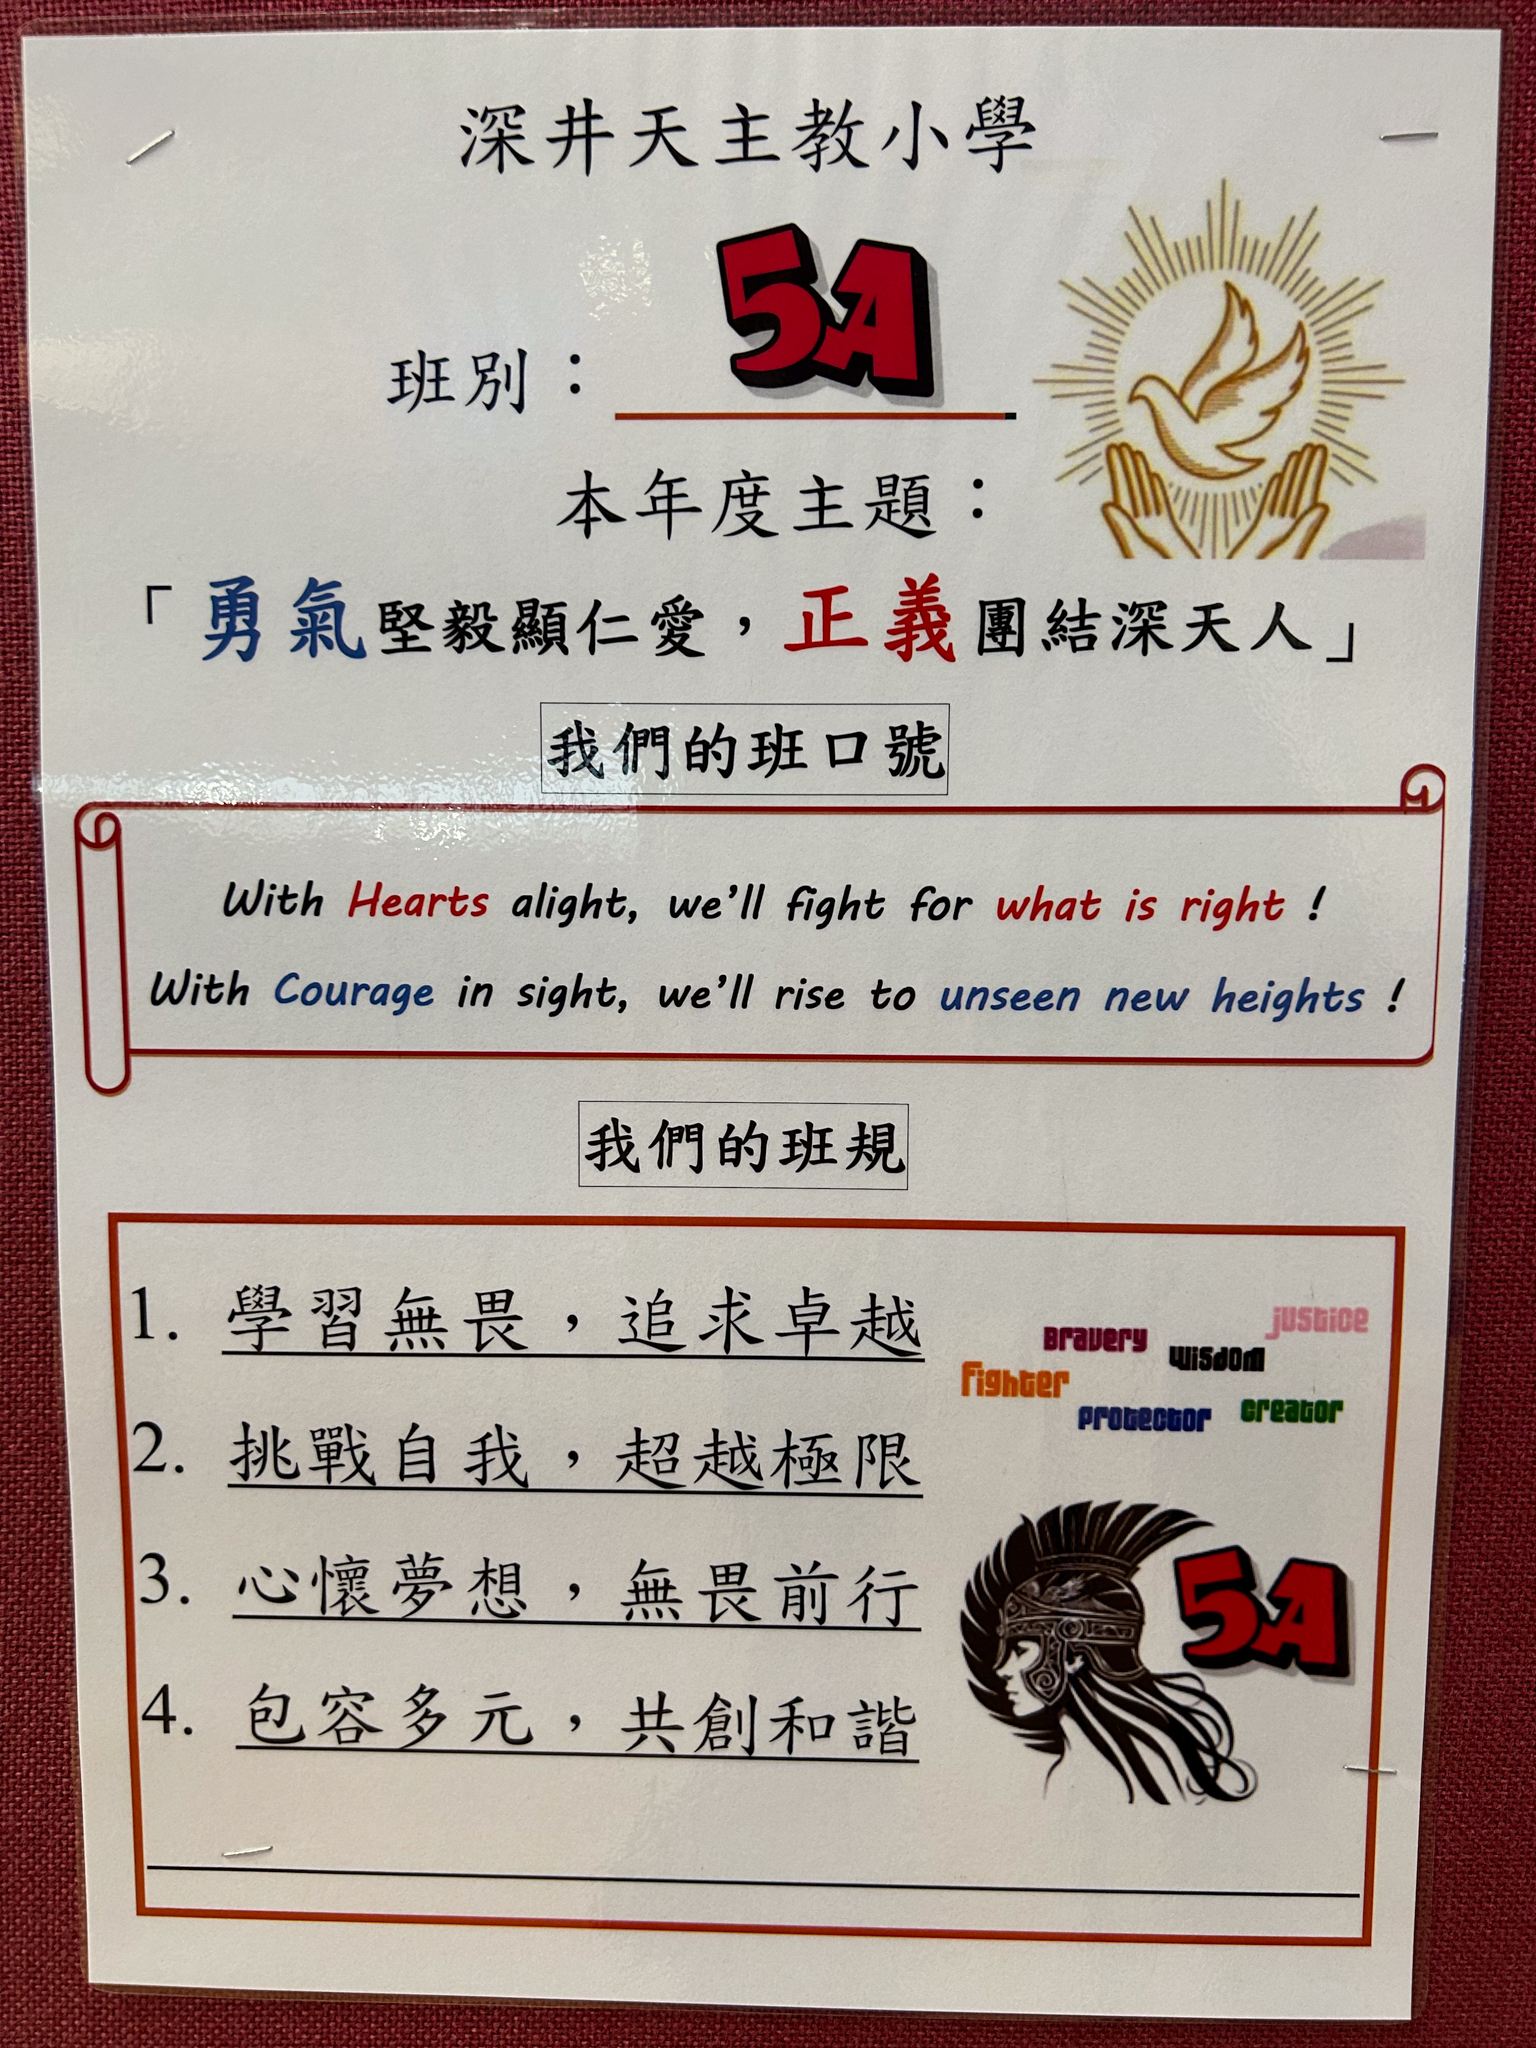 深井天主教小學
班別： 5A
本年度主題：
「勇氣堅毅顯仁愛，正義團結深天人」
我們的班口號
With Hearts alight, we'll fight for what is right !
With Courage in sight, we'll rise to unseen new heights !
我們的班規
1. 學習無畏，追求卓越
2. 挑戰自我，超越極限
3. 心懷夢想，無畏前行
4. 包容多元，共創和諧
justice
Bravery
wisdom
fighter
protector
creator
5A